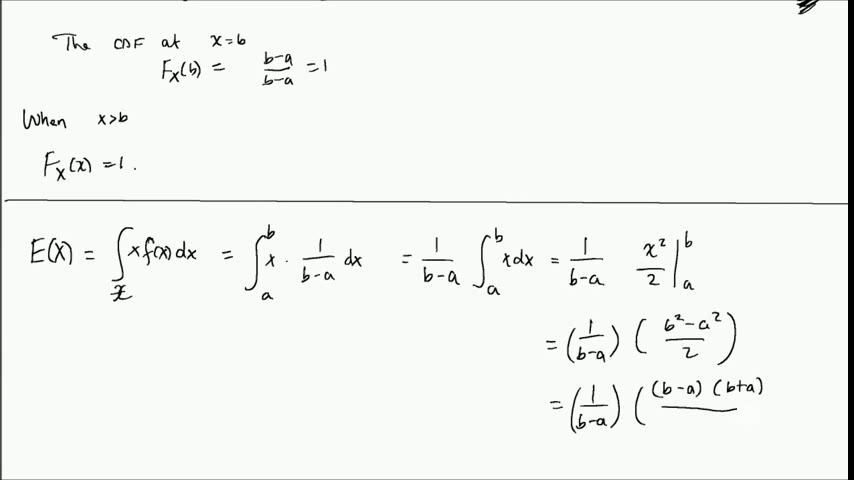 The CDF at x=b
F_X(b) = \frac{b-a}{b-a} = 1
When x>b
F_X(x) = 1.
E(X) = \int_{\mathcal{X}} x f(x) dx = \int_a^b x \cdot \frac{1}{b-a} dx = \frac{1}{b-a} \int_a^b x dx = \frac{1}{b-a} \frac{x^2}{2} |_a^b
= (\frac{1}{b-a}) ( \frac{b^2-a^2}{2} )
= (\frac{1}{b-a}) ( \frac{(b-a)(b+a)}{}